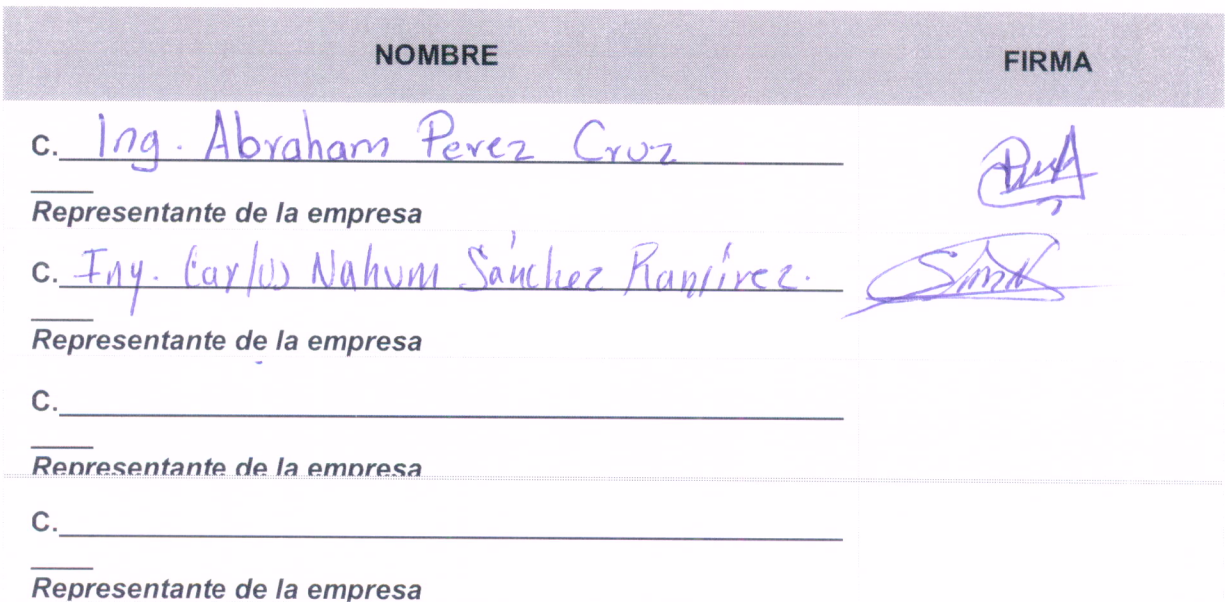 NOMBRE FIRMA
C. Ing. Abraham Perez Cruz
Representante de la empresa
C. Ing. Carlos Nahum Sánchez Ramírez.
Representante de la empresa
C.
Representante de la empresa
C.
Representante de la empresa